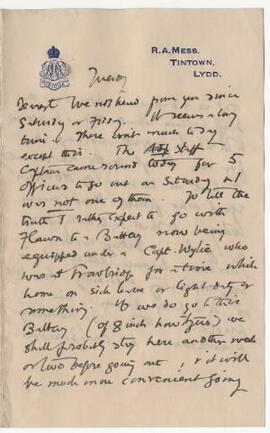 R.A. MESS.
TINTOWN,
LYDD.
Dearest I've not heard from you since
Saturday or Friday. It seems a long
time. There isn't much to say
except this. The Staff
Captain came round today for 5
officers to go out on Saturday and I
was not one of them. To tell the
truth I rather expect to go with
to a Battery now being
equipped under a Capt. Wylie who
was at Trowbridge for a time while
home on sick leave or light duty or
something. If we do go to this
Battery (of 8 inch howitzers) we
shall probably stay here another week
or two before going out, & it will
be much more convenient going